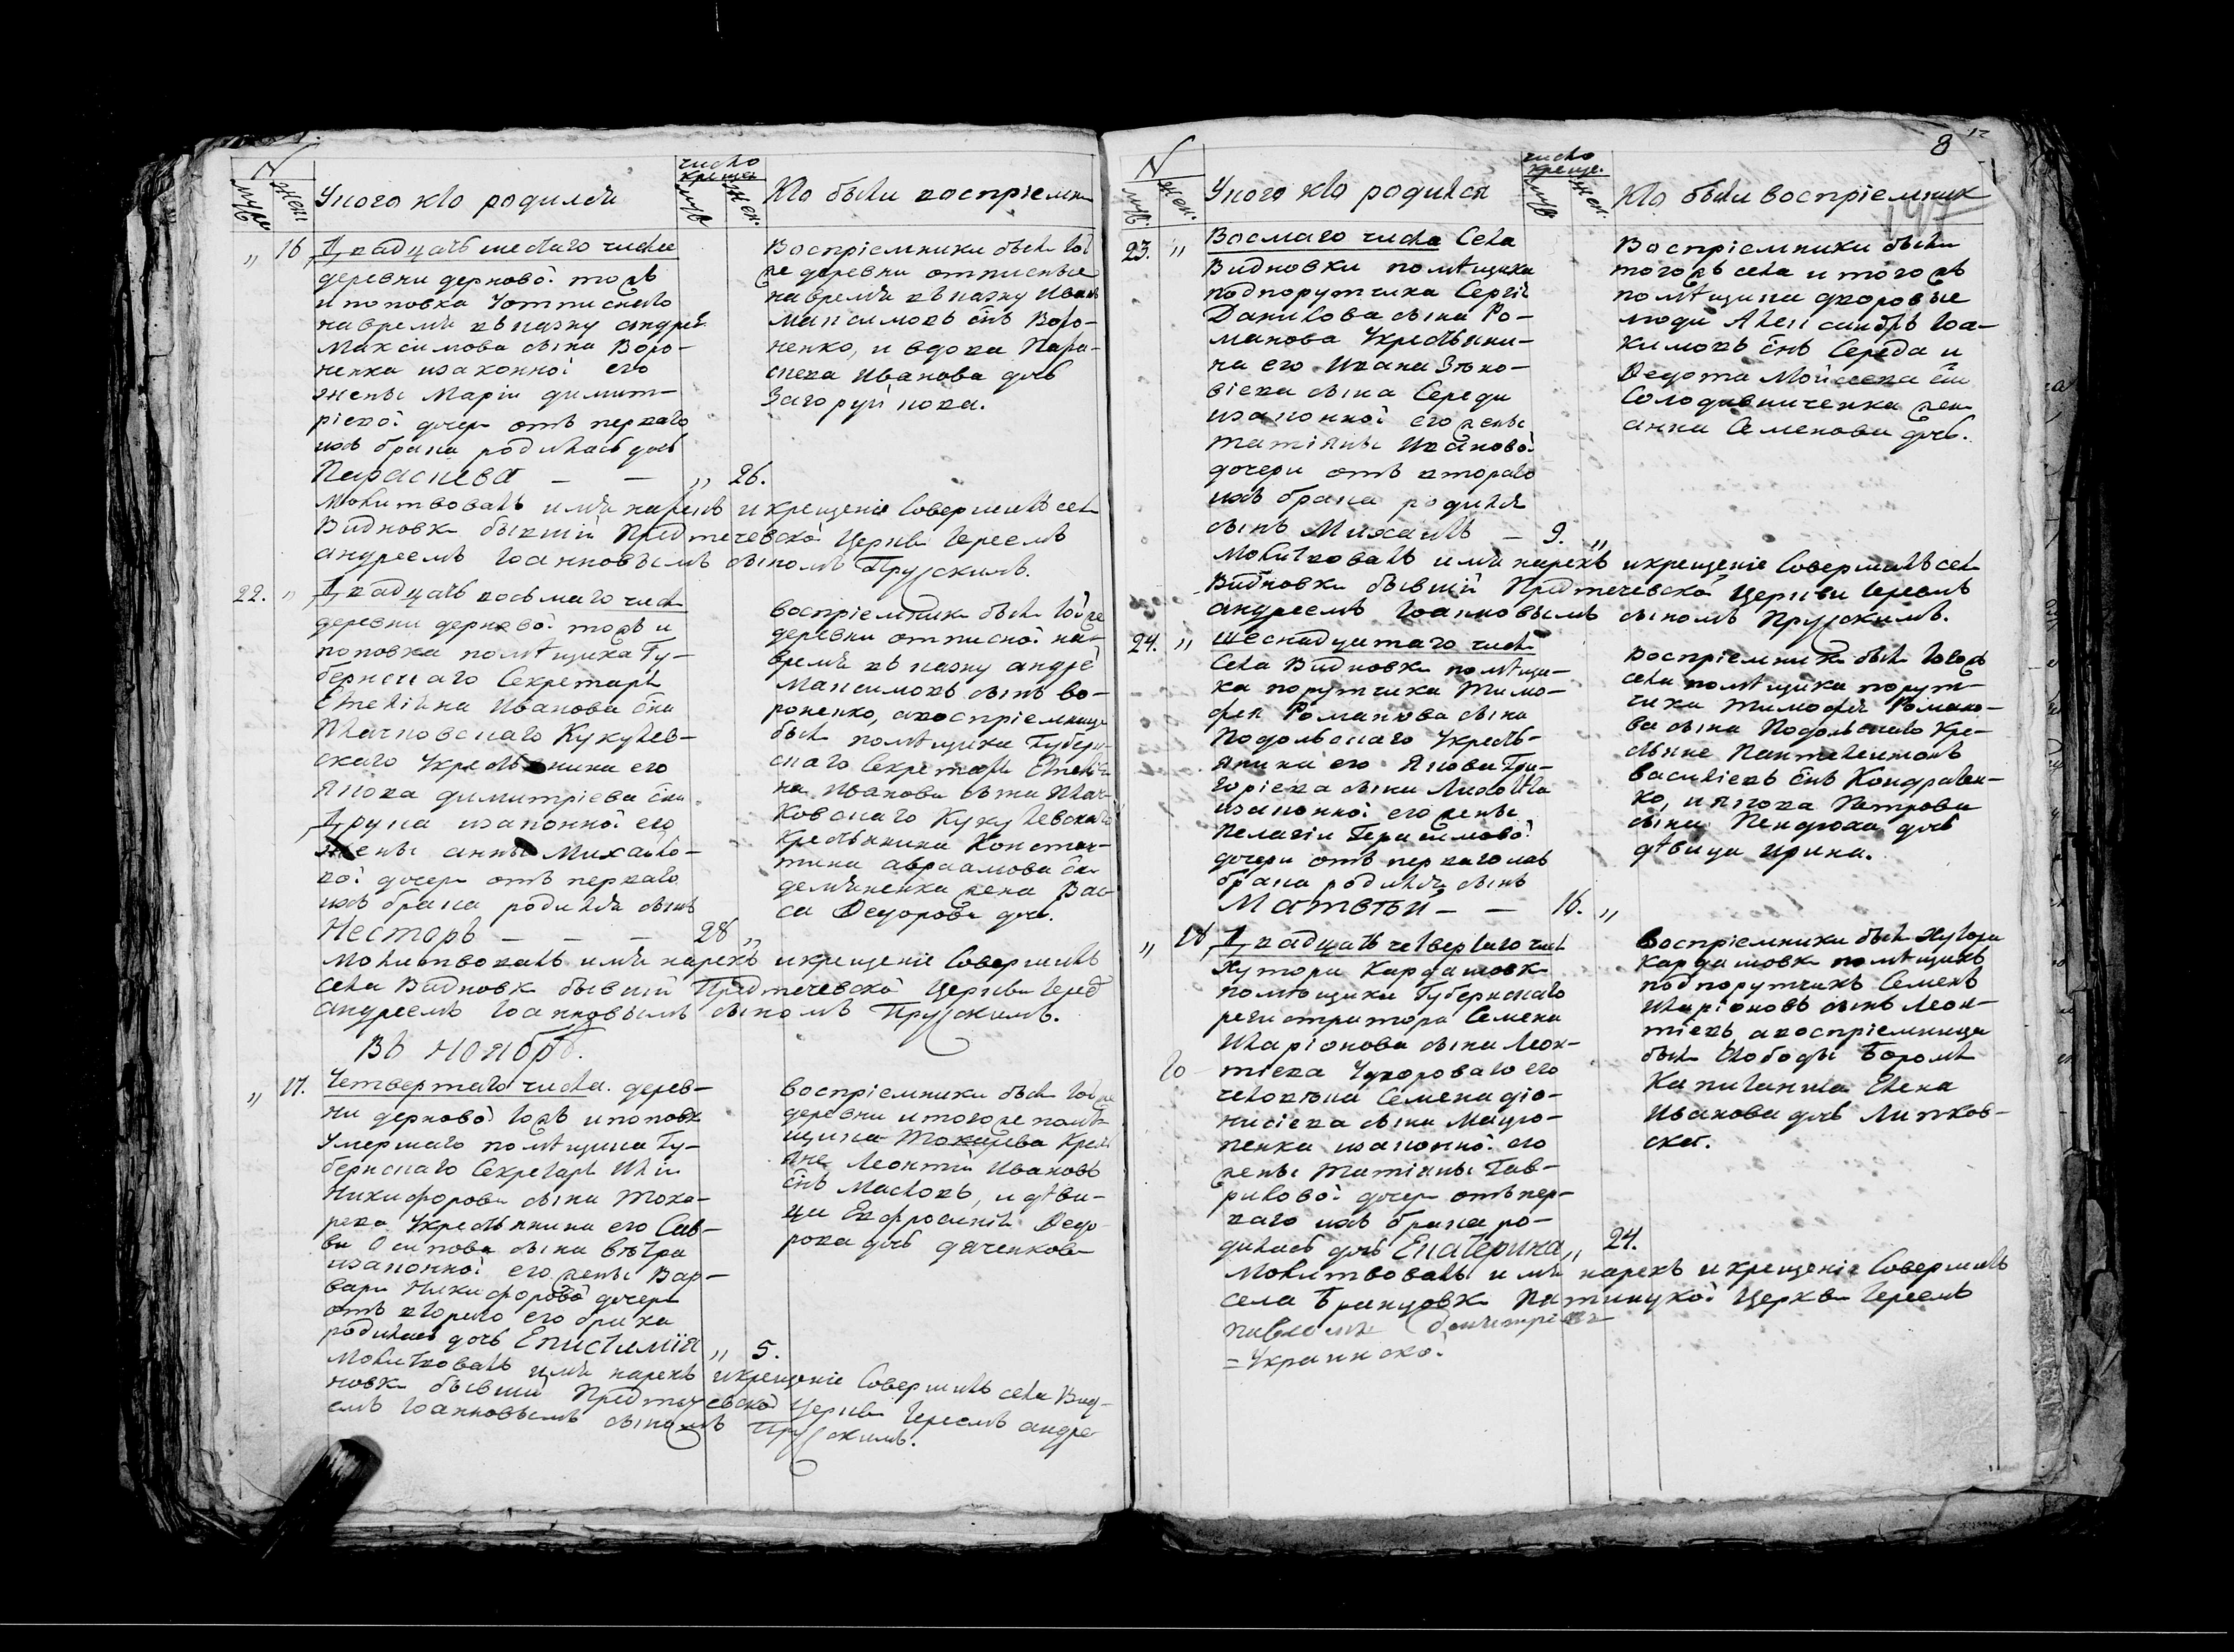 N
муж
жен
У кого кто родился
число
крещен
муж
жен.
Кто были восприемни
„ 16 Двадцать шестаго числа
деревни дерновой тожъ
и поповка У отписнаго
на время въ казну андрея
Максимова сына Воро-
ненка изаконной его
жены Маріи димит-
ріевой дочери отъ перваго
ихъ брака родилась дочь
Параскева — — „ 26.
Восприемники были тоя
же деревни отписные
на время въ казну Иванъ
Максимовъ снъ Воро-
ненко, и вдова Пара-
скева Иванова дочь
Загоруйкова.
Молитвовалъ имя нарекъ и крещеніе Совершилъ сел
Видновк бывшій Предтечевской Церкви Іереемъ
андреемъ Іоанновымъ сыномъ Прускимъ.
22. „ Двадцать восьмаго числ
деревни дерновой тожъ и
поповка помѣщика Гу-
бернскаго Секретаря
Емельяна Иванова сна
Кукулев-
скаго У крестьянина его
Якова димитріева сна
изаконной его
жены анны Михайло-
вой дочери отъ перваго
ихъ брака родился сынъ
Несторъ — — — 28 „
восприемники были тойже
деревни отписной на
время въ казну андрей
Максимовъ сынъ Во-
роненко, авосприемница
была помѣщика Губерн-
скаго Секретаря Емелья
на Иванова сына
Кукулевскаго
крестьянина Констан-
тина авраамова сна
демяненка жена Вас-
са Ѳедорова дочь.
Молитвовалъ имя нарекъ и крещеніе Совершилъ
Села Видновк бывшій Предтечевской Церкви Іерей
андреемъ Іоанновымъ сыномъ Прускимъ.
Въ Ноябрѣ.
„ 17. Четвертаго числа. дерев-
ни дерновой тожъ и поповк
Умершаго помѣщика Гу-
бернскаго Секретаря Ильи
Никифорова сына Тока-
рева У крестьянина его Сав-
вы Осипова сына вѣтра
изаконной его жены Вар-
вары Никифоровой дочери
отъ втораго его брака
родилась дочь Епистимія „ 5.
восприемники были тойже
деревни и тогоже помѣ-
щика Токарева крест
яне Леонтій Ивановъ
снъ Масловъ, и дѣви-
ца Евфросинія Ѳедо-
рова дочь дяченкова
Молитвовалъ имя нарекъ и крещеніе Совершилъ села Вид-
новк бывшій Предтечевской Церкви Іереемъ андре-
емъ Іоанновымъ сыномъ Прускимъ.
8
12
N
муж
жен.
У кого кто родился
число
креще.
муж
жен.
Кто были восприемник
23. „ Восмаго числа Села
Видновки помѣщика
подпорутчика Сергія
Данилова сына Ро-
манова У крестьяни-
на его Ивана Зѣно-
віева сына Середи
изаконной его жены
татіяны Ивановой
дочери отъ втораго
ихъ брака родился
сынъ Михаилъ — 9. „
Восприемники были
тогожъ села и тогожъ
помѣщика дворовые
люди Александръ Іоа-
кимовъ снъ Середа и
Ѳедота Мойсеева сна
Солодовниченка жен
анна Семенова дочь.
Молитвовалъ имя нарекъ и крещеніе Совершилъ сел
Видновки бывшій Предтечевской Церкви Іереемъ
андреемъ Іоанновымъ сыномъ Прускимъ.
24. „ шеснадцатаго числ
Села Видновк помѣщи-
ка порутчика Тимо-
фея Романова сына
Подольскаго У кресть-
янина его Якова Гри-
горіева сына
изаконной его жены
Пелагіи Герасимовой
дочери отъ перваго ихъ
брака родился сынъ
Матвѣй — — 16. „
Восприемники были тогожъ
села помѣщика порут-
чика Тимофея Романо-
ва сына Подольскаго кре-
стьяне Пантелеимонъ
Василіевъ снъ Кондратен-
ко, и Якова Петрова
сына дочь
дѣвица ирина.
„ 18 Двадцать четвертаго числ
Хутора Кардашовк
помѣщика Губернскаго
регистратора Семена
Иларіонова сына Леон-
тіева У двороваго его
человѣка Семена діо-
нисіева сына
изаконной его
жены Татіяны Гав-
риловой дочери отъ пер-
ваго ихъ брака ро-
дилась дочь Екатерина „ 24.
восприемники были Хутора
Кардашовк помѣщикъ
подпорутчикъ Семенъ
Иларіоновъ сынъ Леон-
тіевъ, авосприемница
была Слободы Боромл
Капитанша Елена
Иванова дочь Липков-
ска.
Молитвовалъ имя нарекъ и крещеніе Совершилъ
села Пятницкой Церкви Іереемъ
павломъ
Украинско.